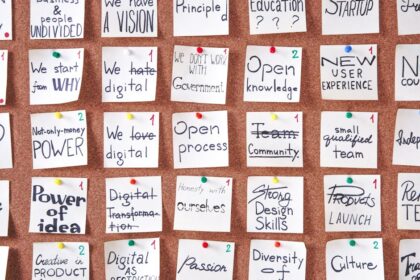 Business
& people
UNDIVIDED
We have
A VISION
Principle
Education
? ? ?
STARTUP
We start
from WHY
1
We hate
digital
1
WE DON'T WORK
WITH
Government
1
Open
knowledge
2
NEW
USER
EXPERIENCE
1
Not-only-money
POWER
2
We love
digital
1
Open
process
1
Team
COMMUNITY.
1
small
qualified
team
2
Power
of
idea
1
Digital
Transforma-
tion
1
Honesty with
ourselves
1
Strong
Design
Skills
2
Products
LAUNCH
1
Creative in
PRODUCT
2
Digital
AS
1
Passion
2
Diversity
of
2
Culture
2